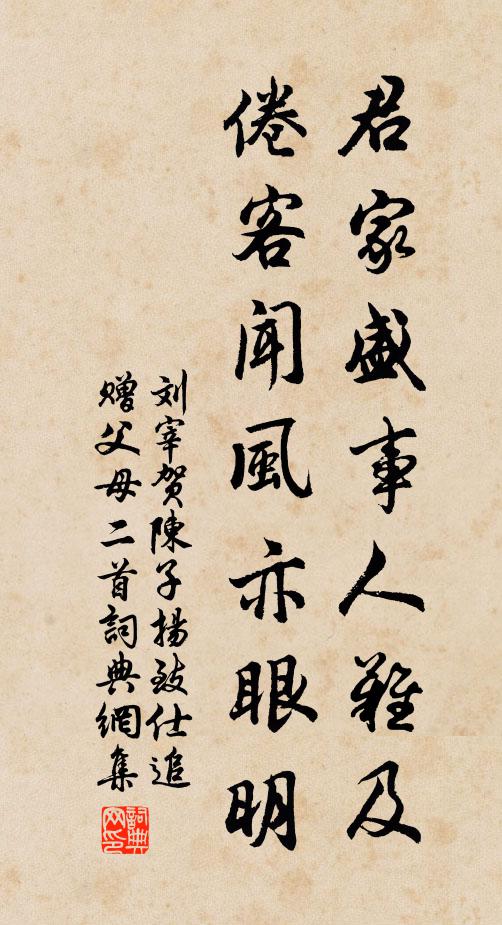 君家盛事人難及
倦客聞風亦眼明
刘宰贺陳子揚致仕追
赠父母二首詞典網集
詞典网印